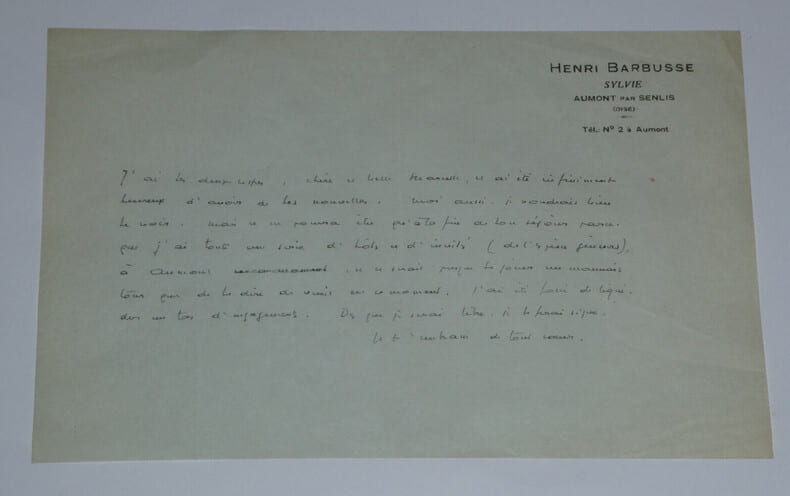 HENRI BARBUSSE
SYLVIE
AUMONT PAR SENLIS
(OISE)
Tél.: Nº 2 à Aumont
J'ai les deux , chère et belle , et ai été infiniment
heureux d'avoir de tes nouvelles. Moi aussi, je voudrais bien
te voir. Mais ce ne pourra être qu'à la fin de ton séjour parce
que j'ai toute une série d'hôtes et d'invités (de l' ),
à Aumont et ce serait presque te jouer un mauvais
tour que de te dire de venir en ce moment. J'ai été forcé de
des un tas d'engagements. Dès que je serai libre, je te ferai signe.
Je t'embrasse de tout coeur.